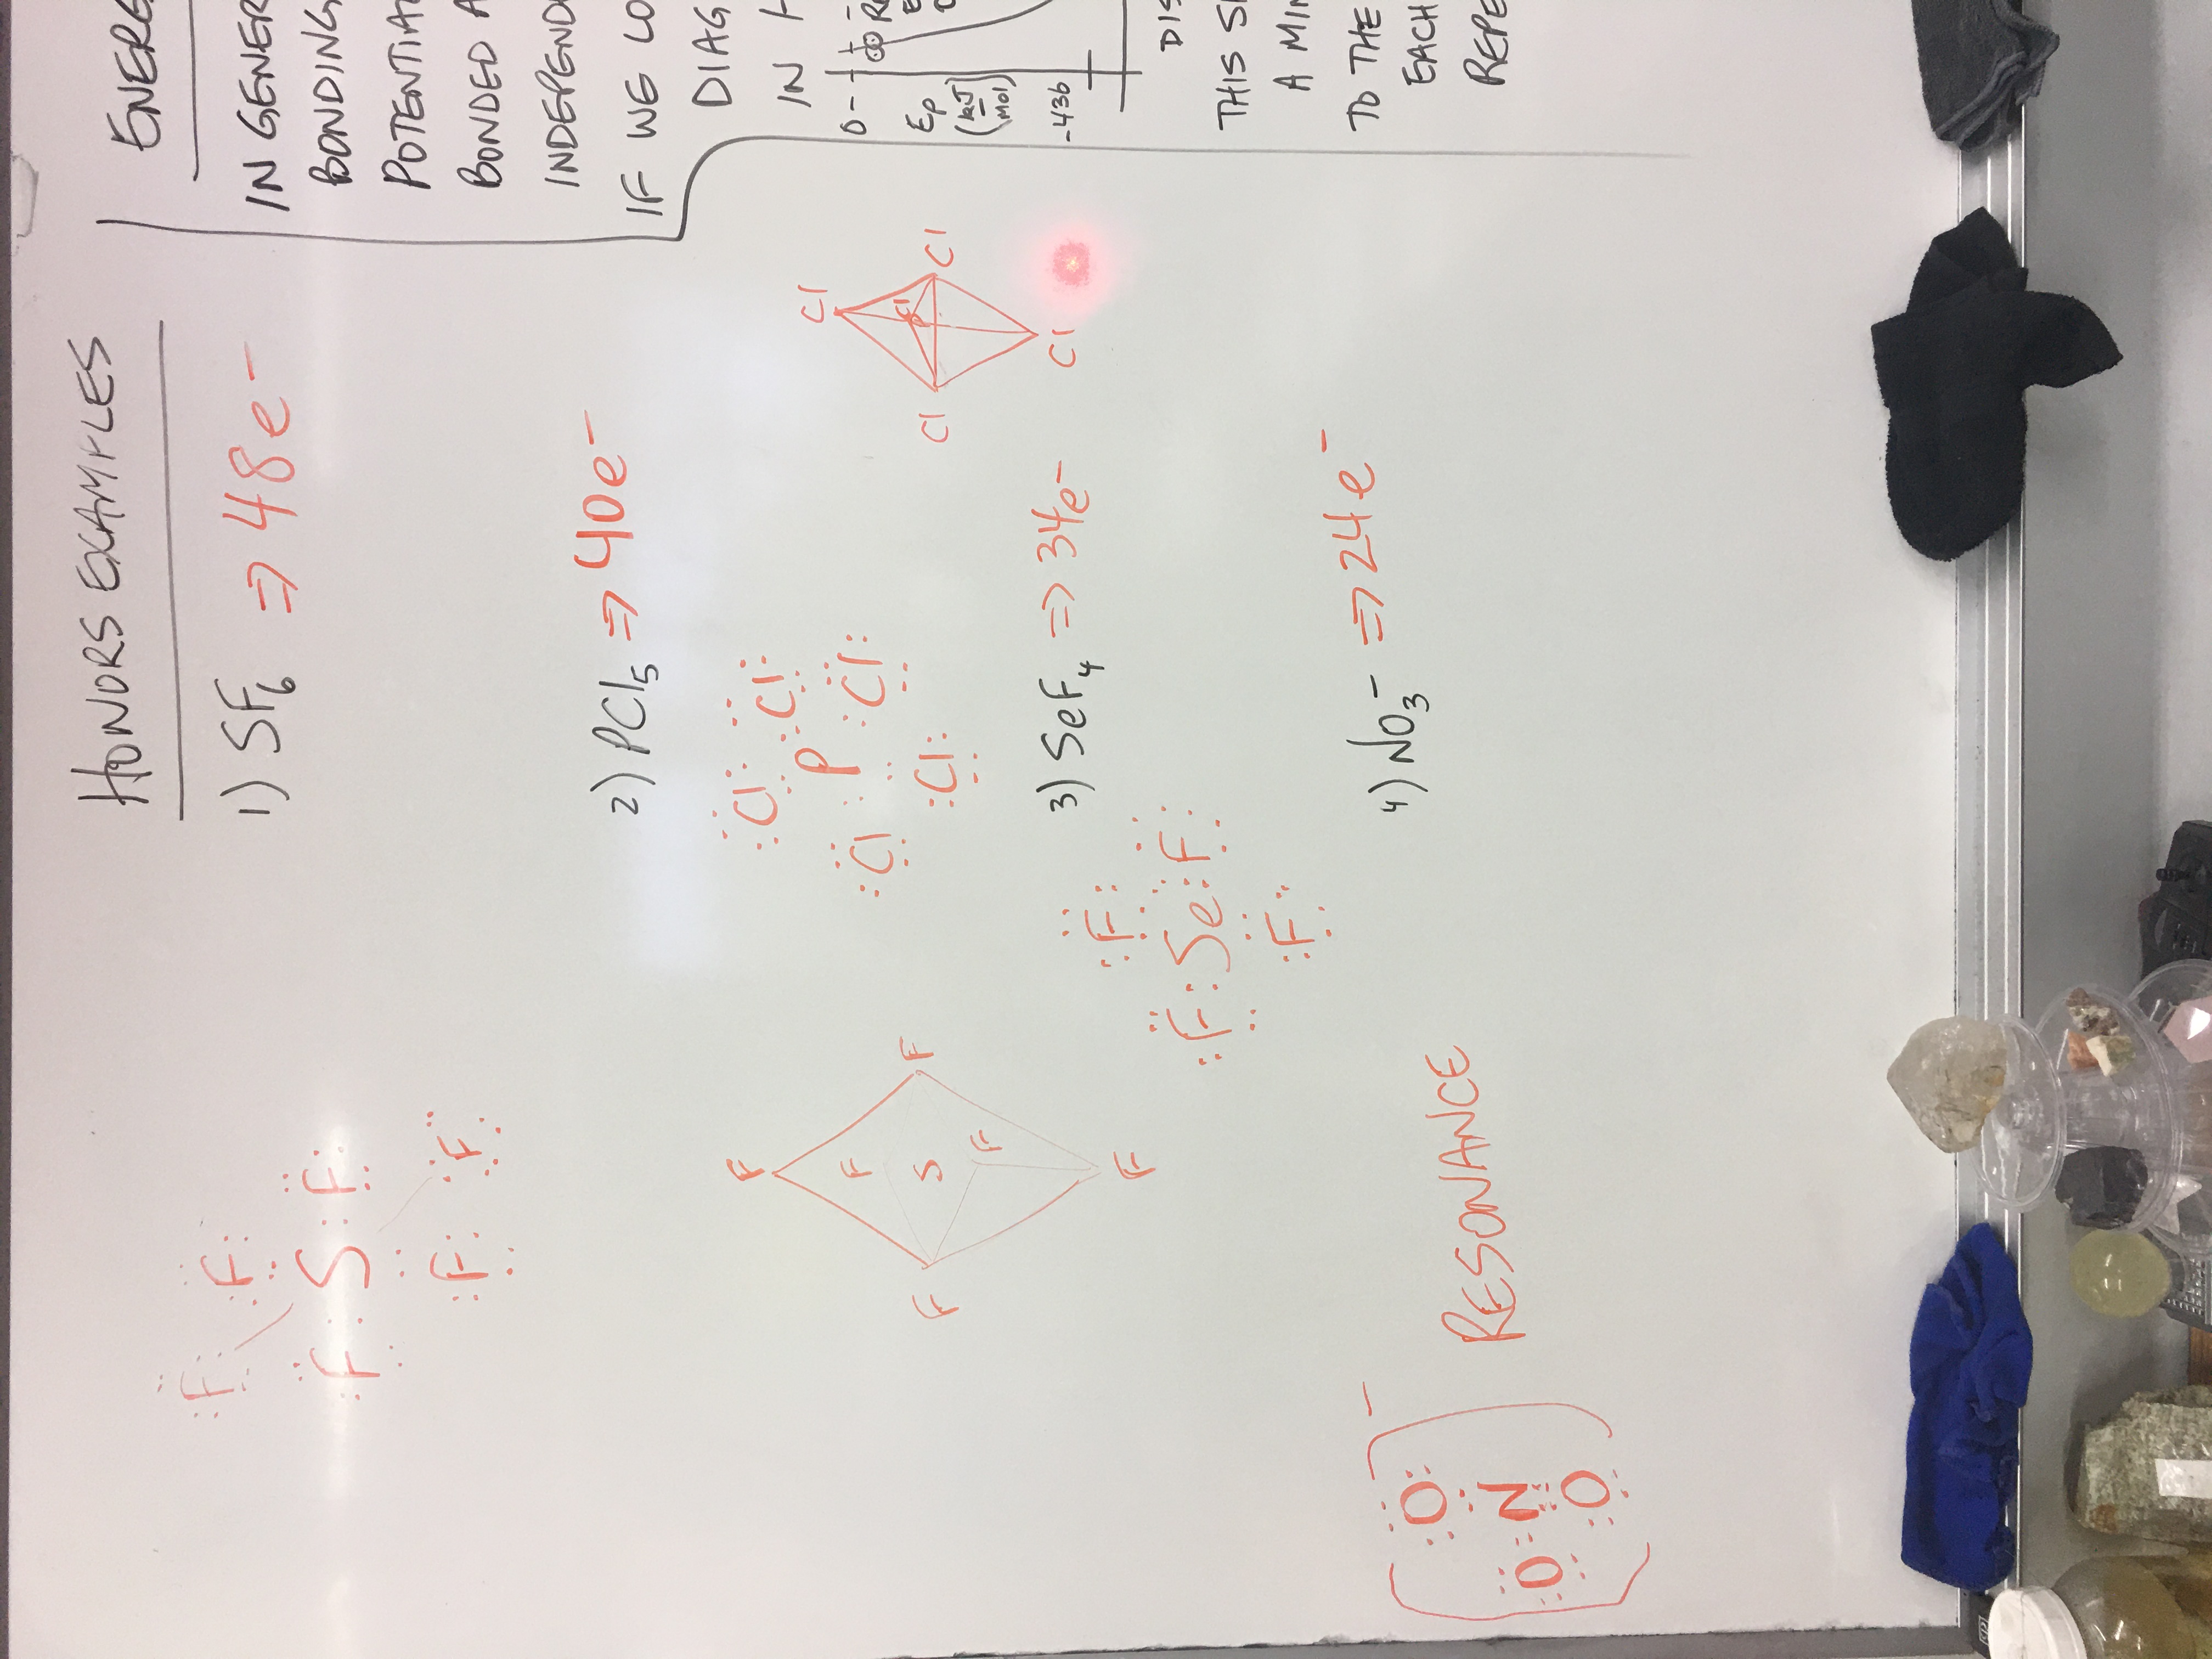 HONORS EXAMPLES
1) SF6 => 48e-
F F
F S F
F F
2) PCl5 => 40e-
Cl Cl
Cl P Cl
Cl
Cl
Cl P Cl
Cl
Cl
F
F F
S
F F
F
3) SeF4 => 34e-
F
F Se F
F
4) NO3- => 24e-
O -
O N
O
RESONANCE
ENERG
IN GENER
BONDING
POTENTIA
BONDED A
INDEPEND
IF WE LO
DIAG
IN H
0
Ep
(kJ/mol)
-436
DIS
THIS SH
A MIN
TO THE
EACH
REPE